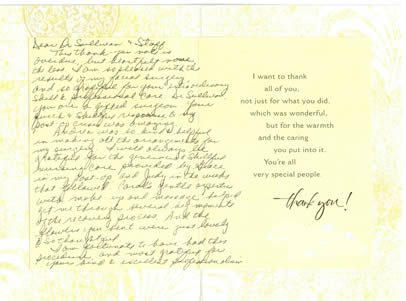 Dear Dr Sullivan & Staff
This thank-you note is
overdue, but heartfelt none
the less. I am so pleased with the
results of my facial surgery
and so grateful for your extraordinary
skill & professional care. Dr Sullivan
you are a gifted surgeon. Your
quick & skillful response to my
post-op crisis was amazing.
was so kind & helpful
in making all the arrangements for
my surgery. I will always be
grateful for the genuine & skillful
nursing care provided by
in my post-op and Judy in the weeks
that followed. Carol's gentle expertise
with make-up and massage helped
get me through several big moments
of the recovery process. And the
flowers you sent were just lovely
& so thoughtful.
I am fortunate to have had this
procedure and most grateful for
your kind & excellent professionalism
I want to thank
all of you,
not just for what you did,
which was wonderful,
but for the warmth
and the caring
you put into it.
You're all
very special people.
thank you!